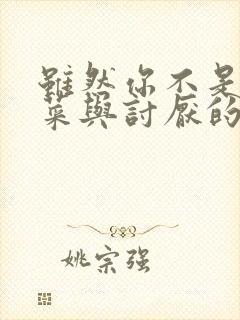 雖然你不是
菜與討厭的
姚宗强